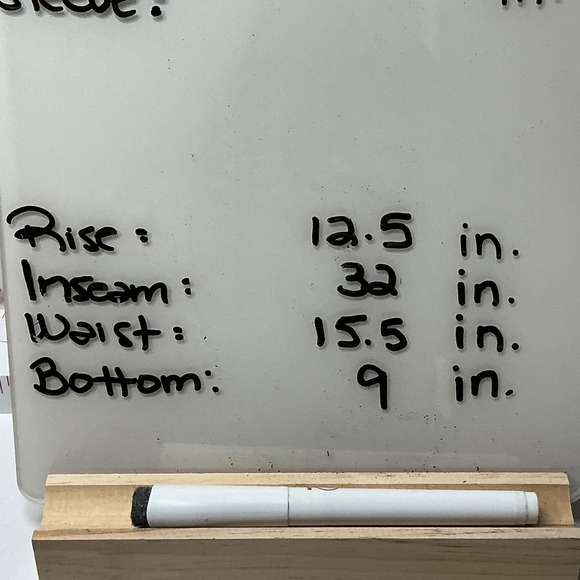 Rise: 12.5 in.
Inseam: 32 in.
Waist: 15.5 in.
Bottom: 9 in.